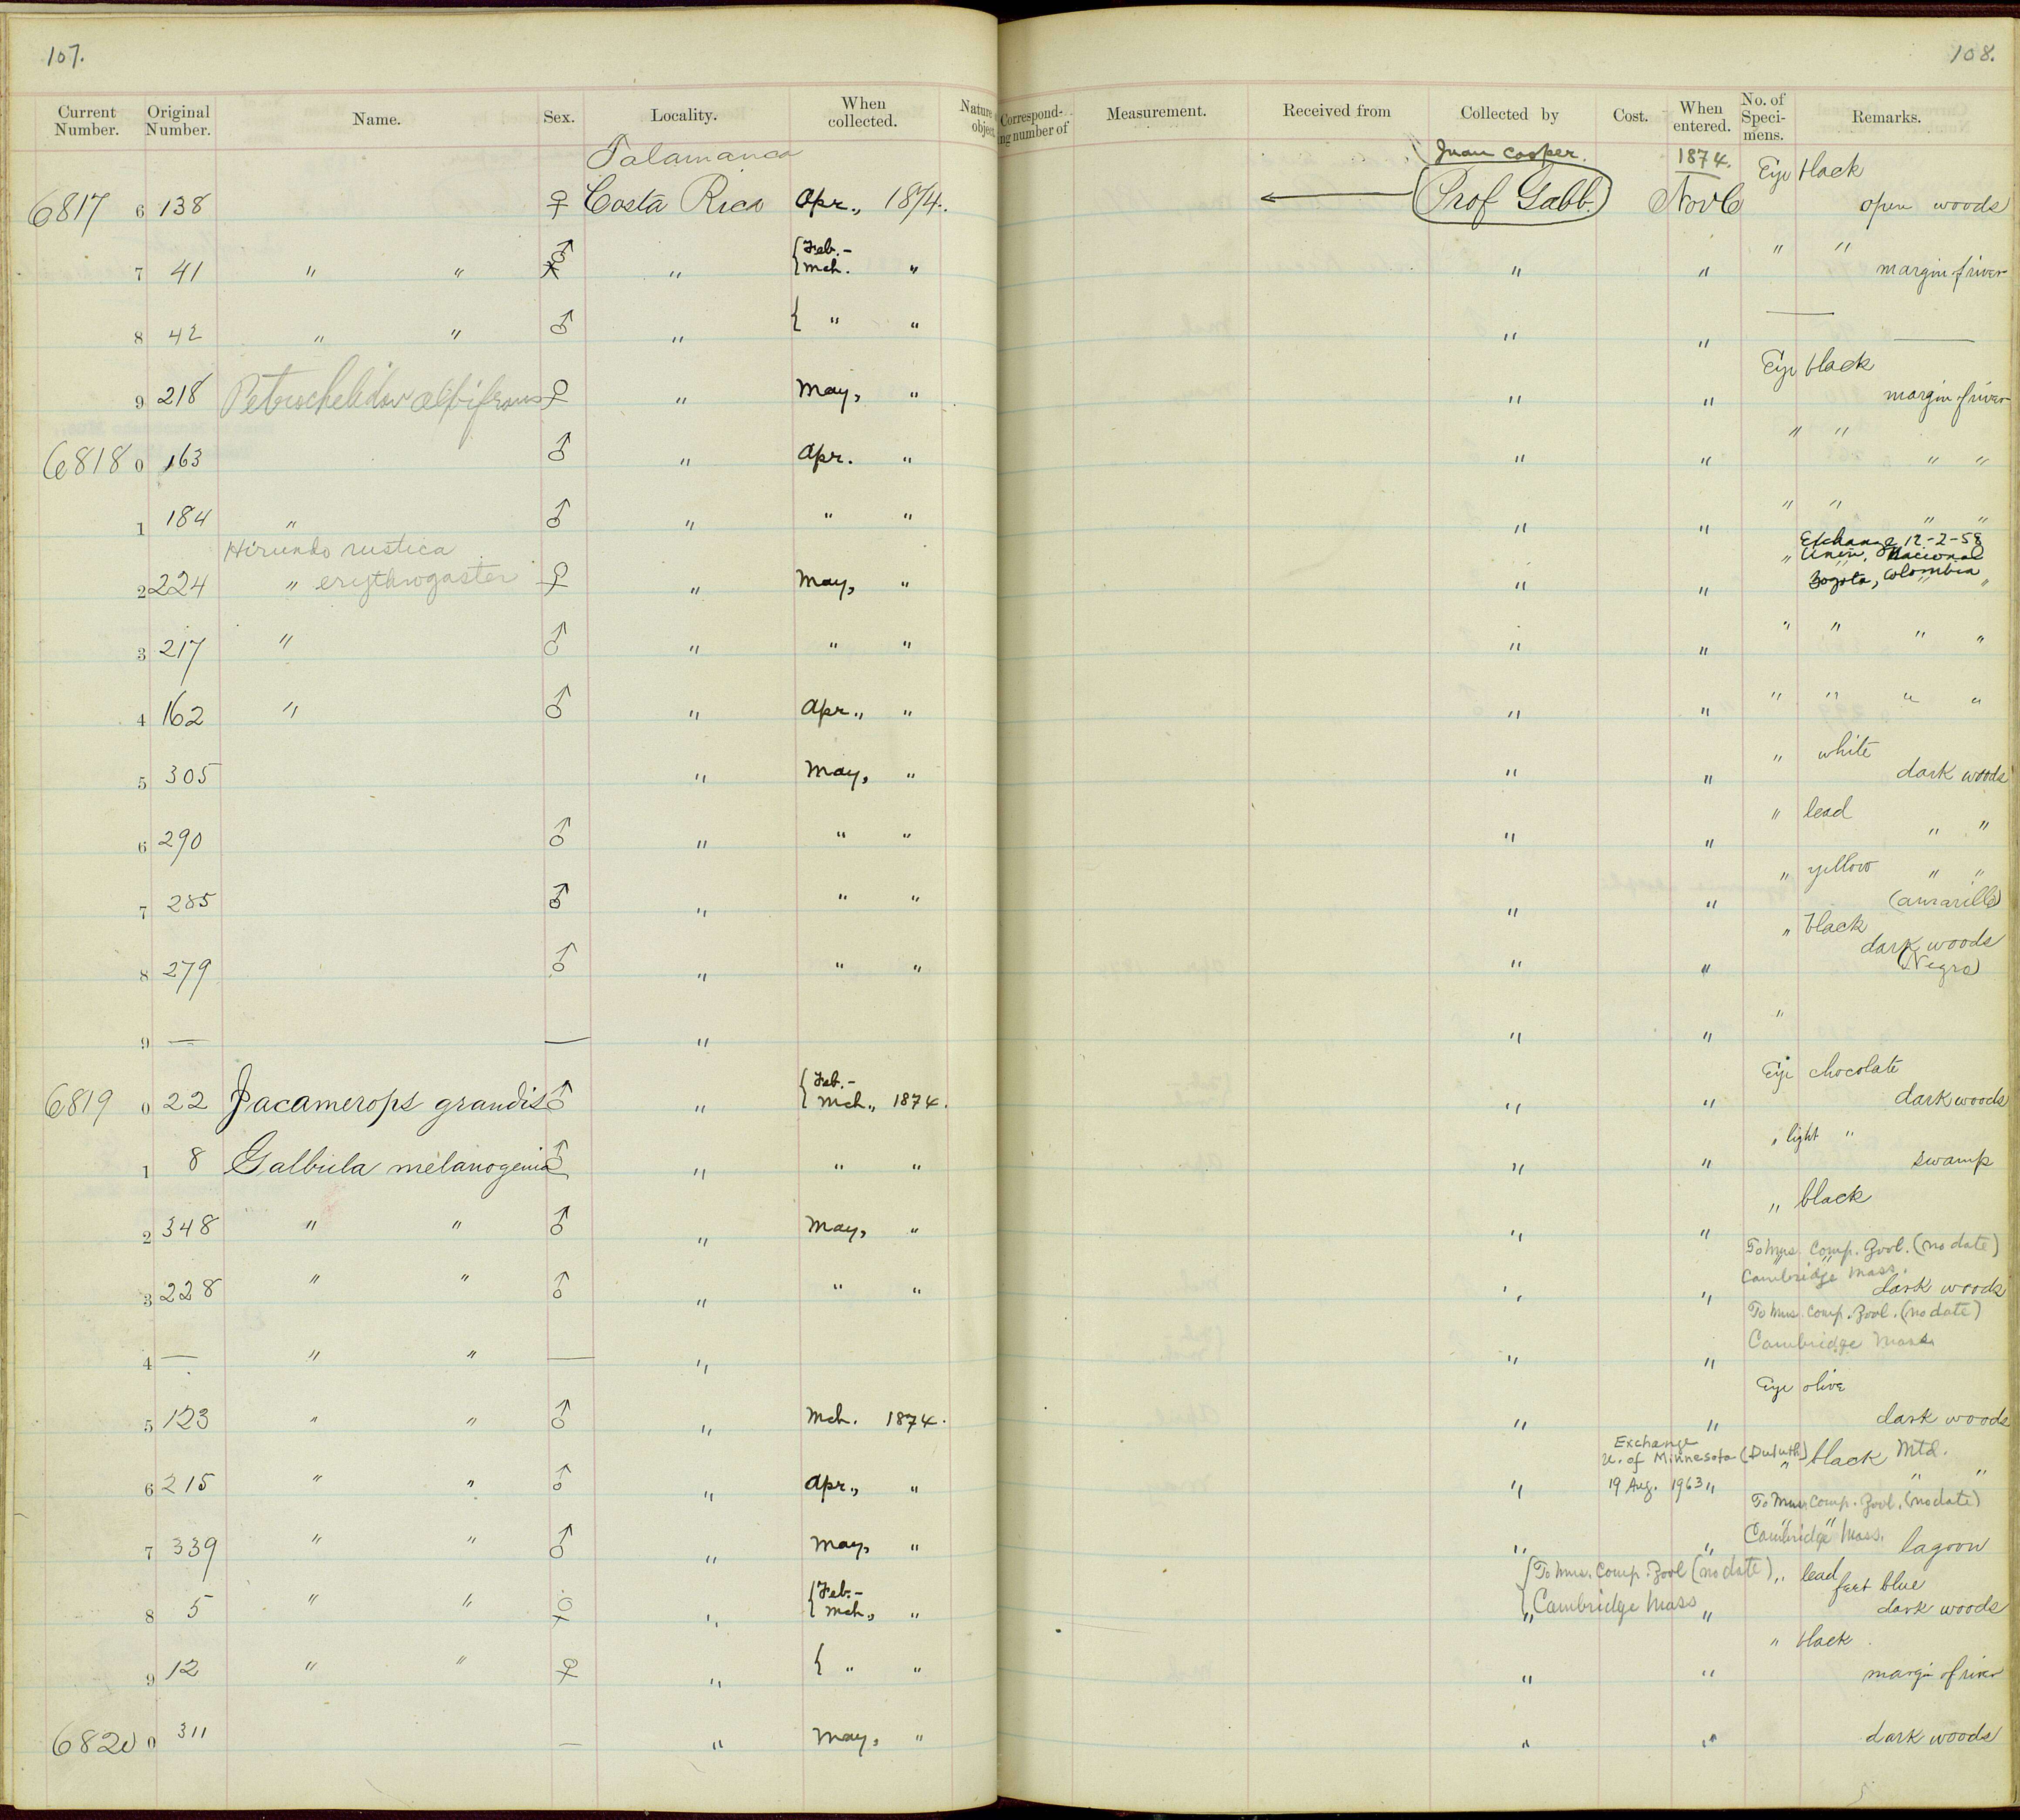 107.
108.
Current Number. Original Number. Name. Sex. Locality. When collected. Nature object Correspond-ing number of Measurement. Received from Collected by Cost. When entered. No. of Speci-mens. Remarks.
Talamanca Juan Cooper. 1874. Eye black
6817 6 138 ♀ Costa Rica Apr., 1874. Prof Gabb. Nov 6 open woods
{Feb.- " "
7 41 " " ♂ " Mch. " " " margin of river
8 42 " " ♂ " { " " " " — —
Eye black
9 218 Petrochelidon albifrons ♀ " May, " " " margin of river
" "
6818 0 163 ♂ " Apr. " " " " "
" "
1 184 " ♂ " " " " " " "
Hirundo rustica Exchange 12-2-58
" Univ. Nacional
2 224 " erythrogaster ♀ " May, " " " Bogota, Colombia "
3 217 " ♂ " " " " " " " " "
4 162 " ♂ " Apr., " " " " " " "
" white
5 305 " May, " " " dark woods
" lead
6 290 ♂ " " " " " " "
" yellow " "
7 285 ♂ " " " " " (amarillo)
" black
dark woods
8 279 ♂ " " " " " (Negro)
"
9 — — " " "
{Feb.- Eye chocolate
6819 0 22 Jacamerops grandis ♂ " Mch., 1874. " " dark woods
" light "
1 8 Galbula melanogenia ♂ " " " " " swamp
" black
2 348 " " ♂ " May, " " "
To Mus. Comp. Zool. (no date)
Cambridge Mass.
3 228 " " ♂ " " " " " dark woods
To Mus. Comp. Zool. (no date)
Cambridge Mass.
4 — " " — " " "
Eye olive
5 123 " " ♂ " Mch. 1874. " " dark woods
Exchange
U. of Minnesota (Duluth) " black Mtd.
6 215 " " ♂ " Apr., " " 19 Aug. 1963 " " "
To Mus Comp. Zool. (no date)
" "
Cambridge Mass.
7 339 " " ♂ " May, " " " lagoon
{To Mus. Comp. Zool (no date) " lead
{Feb.- feet blue
8 5 " " ♀ " Mch., " " Cambridge Mass " dark woods
" black
9 12 " " ♀ " { " " " " margin of river
6820 0 311 — " May, " " " dark woods